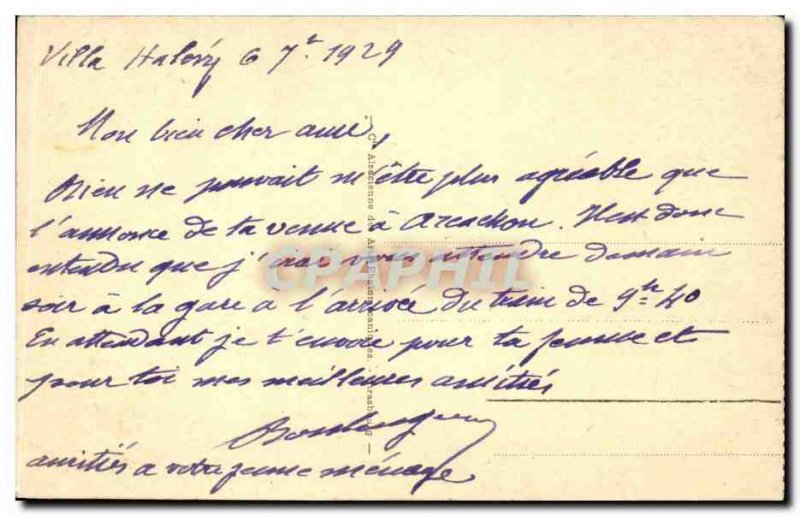 Villa Halévy 6 7re 1929
Mon bien cher ami,
Rien ne pouvait m'être plus agréable que
l'annonce de ta venue à Arcachon. Il est donc
entendu que j'irai vous attendre demain
soir à la gare à l'arrivée du train de 9h 40
En attendant je t'envoie pour ta femme et
pour toi mes meilleures amitiés
amitiés a votre jeune ménage
— Cie Alsacienne des Arts Photomécaniques, Strasbourg —
CPAPHIL